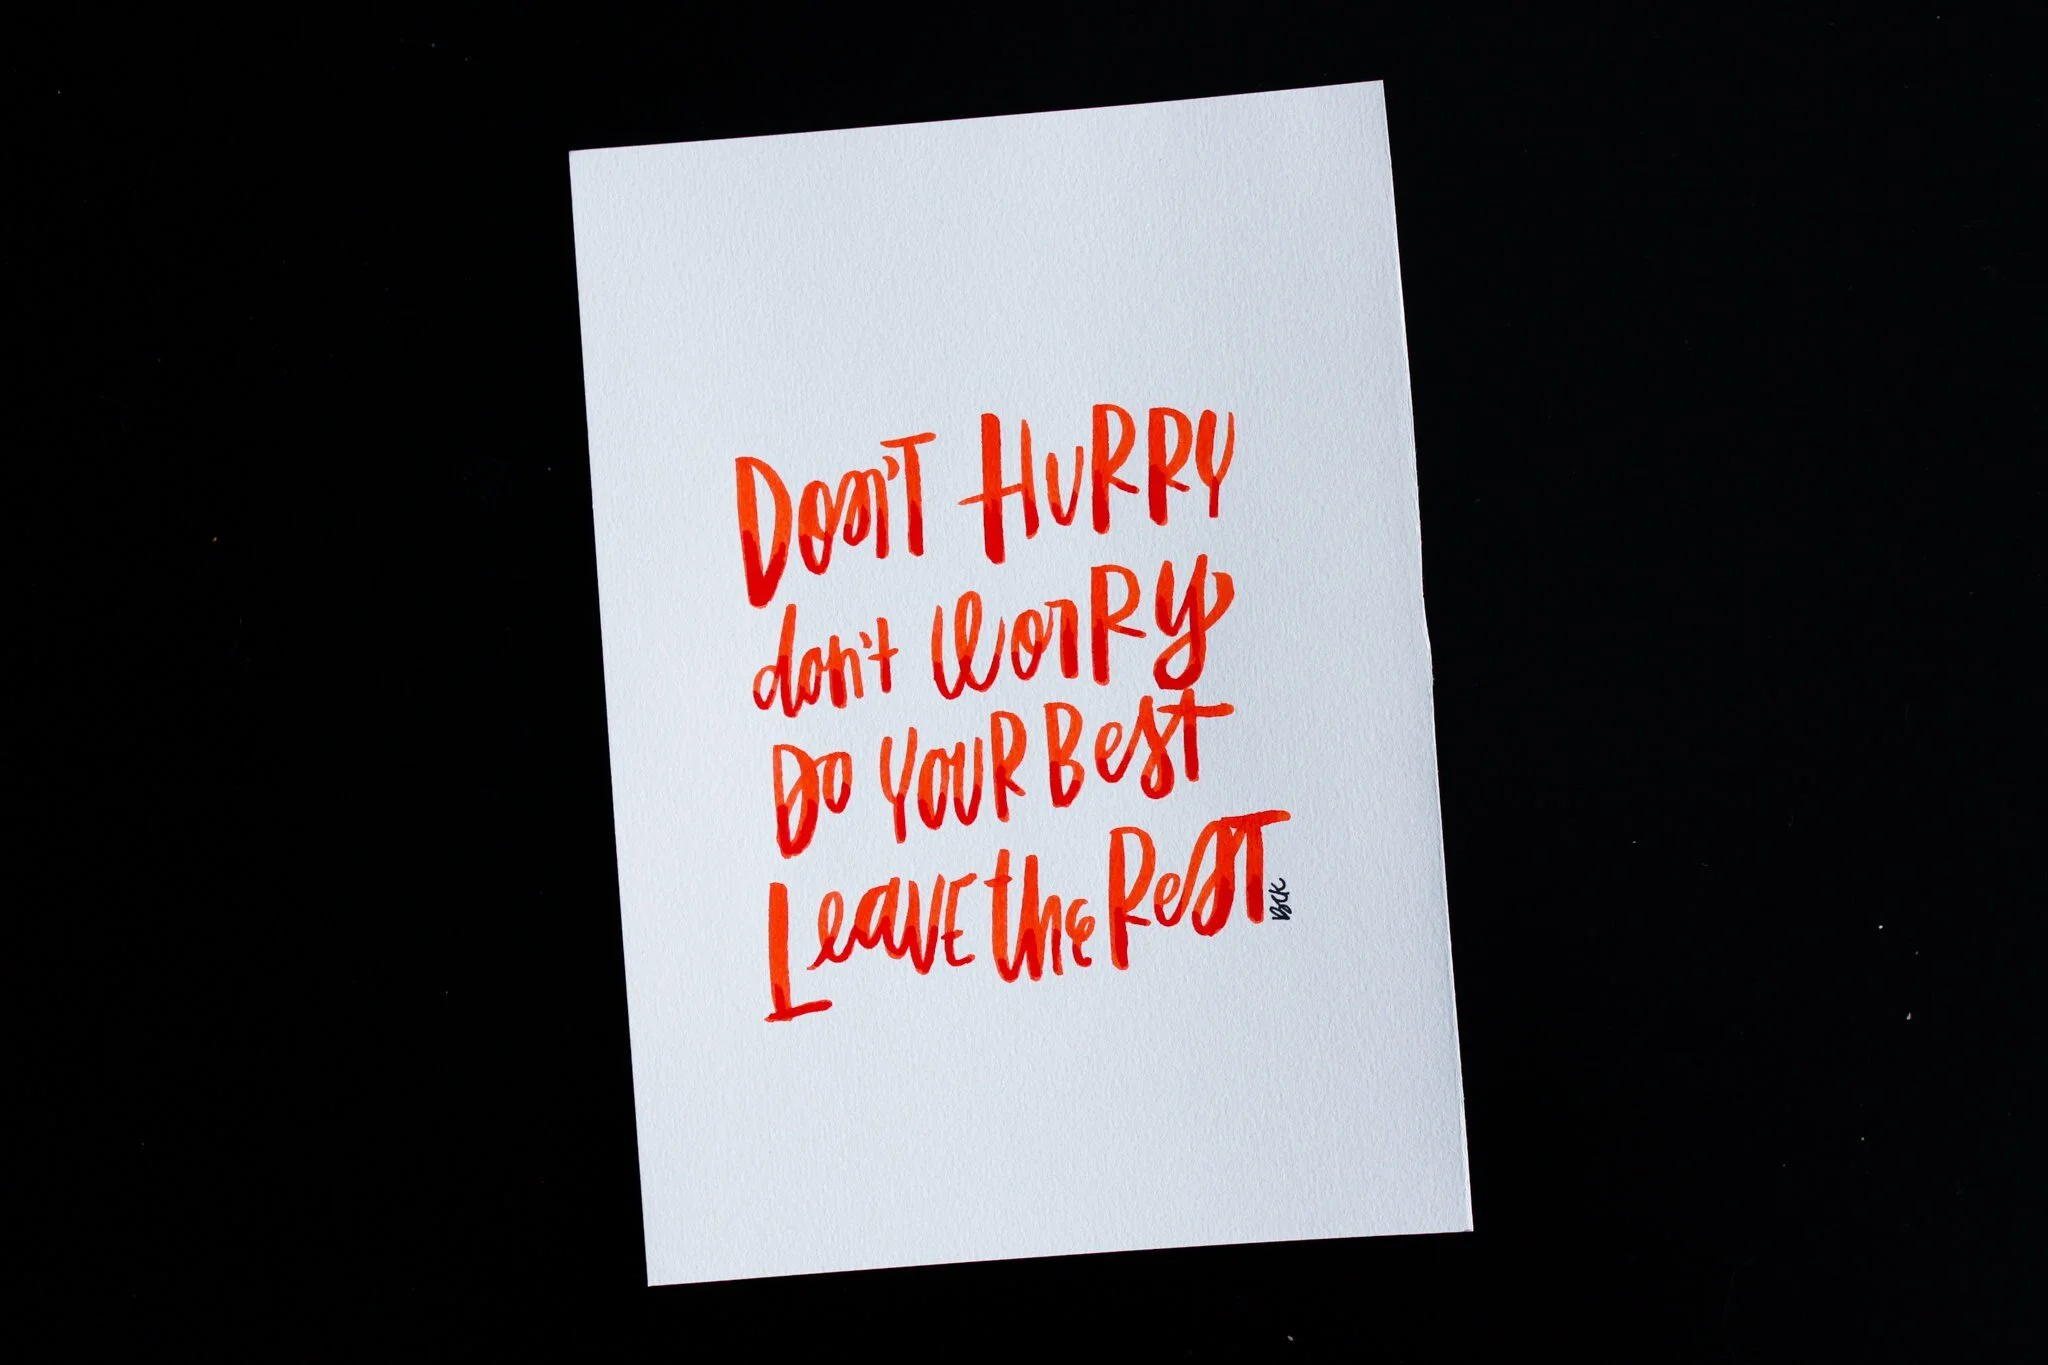 Don't HURRY
don't worRy
Do YOUR Best
Leave the Rest.
BCK